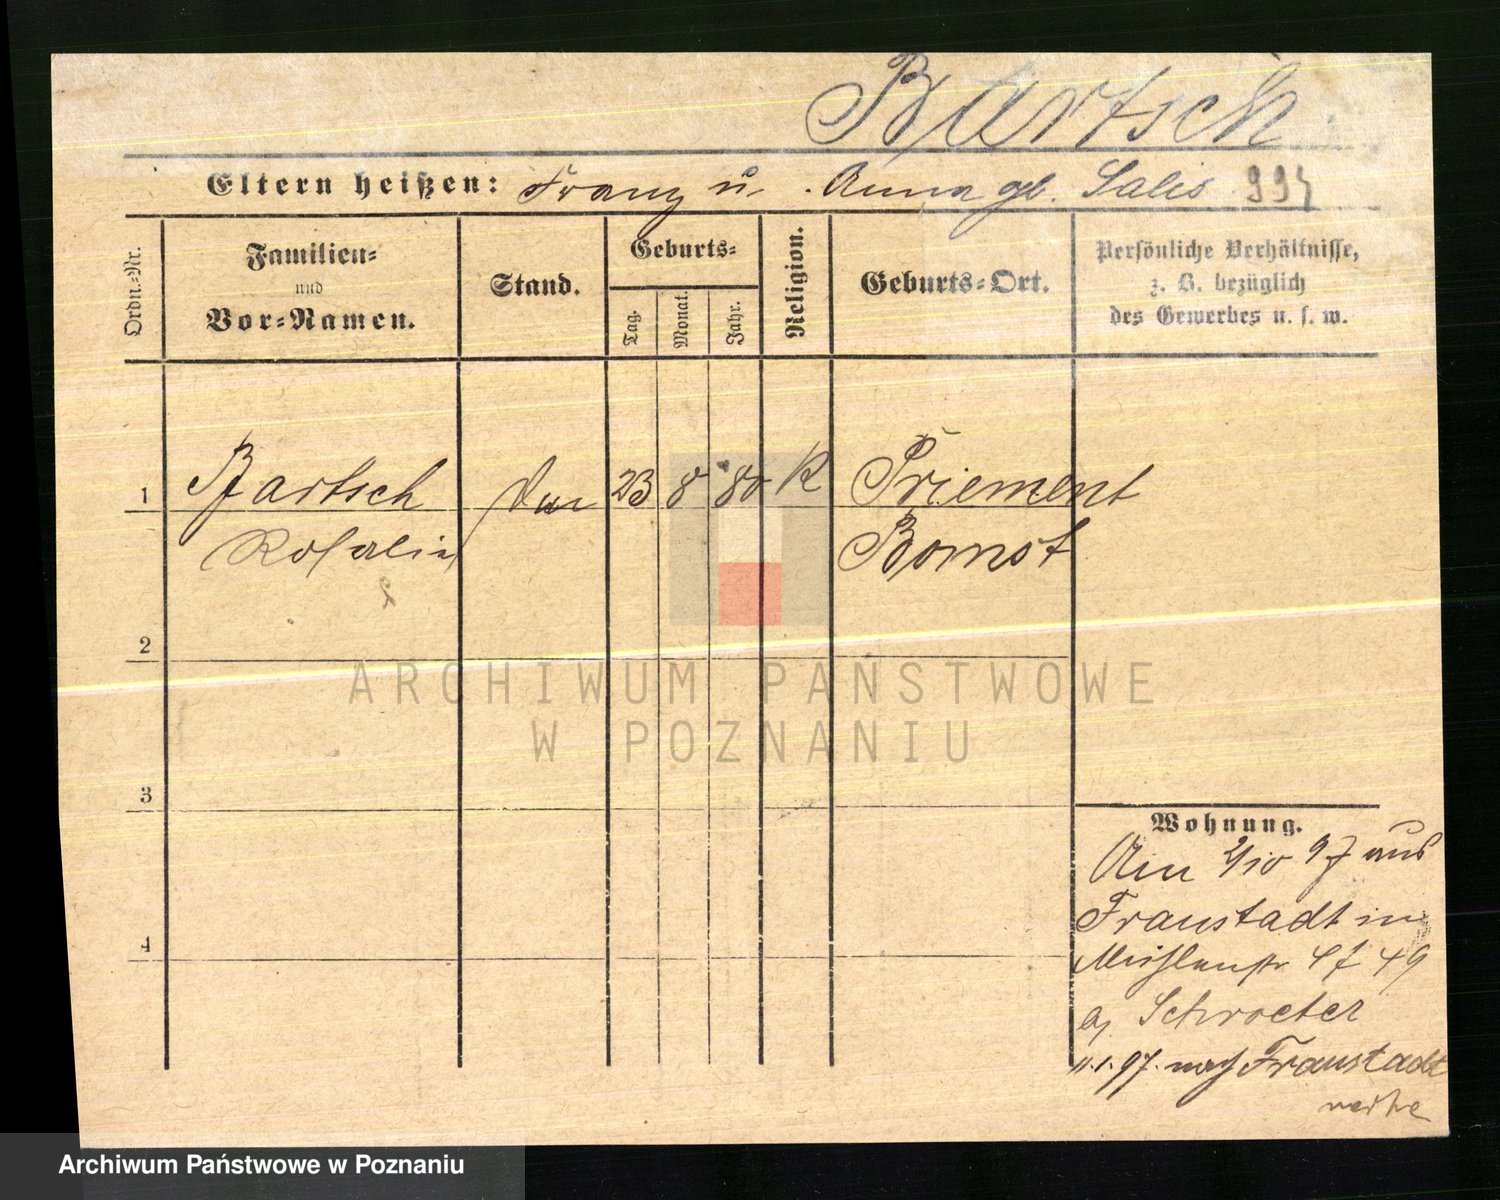 Bartsch
Eltern heißen: Franz u. Anna geb. Salis
Ordn.-Nr.
Familien-
und
Vor-Namen.
Stand.
Geburts-
Tag.
Monat.
Jahr.
Religion.
Geburts-Ort.
Persönliche Verhältnisse,
z. B. bezüglich
des Gewerbes u. s. w.
1 Bartsch 23 8 80 K Priement
Rosalie Bomst
2
3
4
Wohnung.
Am 2/10 97 aus
Fraustadt in
Mühlenstr
Schroeter
11.1.97. nach Fraustadt
ARCHIWUM PAŃSTWOWE
W POZNANIU
Archiwum Państwowe w Poznaniu